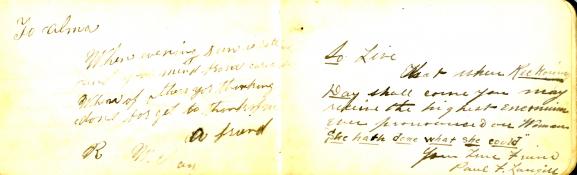 To Alma
When evening Sun is
your mind from care is
When of others you thinking
dont forget to think of me
A friend
R
So Live
That when Reckoning
Day shall come you may
receive the highest encomium
ever pronounced on Woman
"She hath done what she could"
Your True Friend
Paul F.